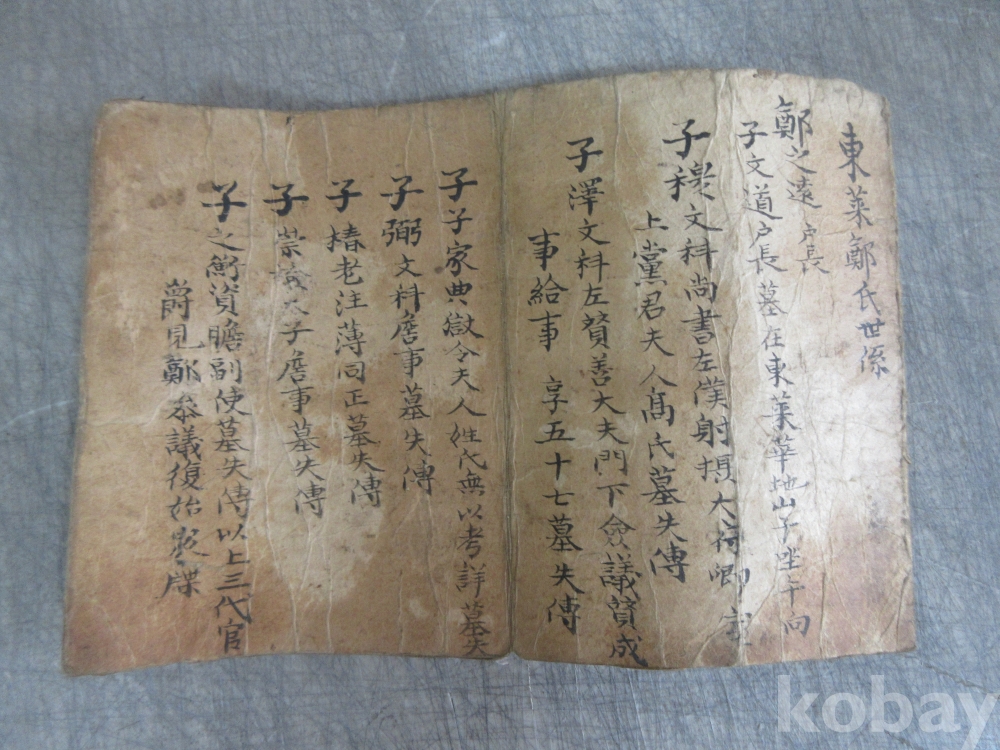 東萊鄭氏世係
鄭之遠 戶長
子文道戶長墓在東萊華地山子坐午向
子穆文科尚書左僕射摂大府卿
上黨君夫人高氏墓失傳
子澤文科左賛善大夫門下僉議賛成
事給事 享五十七墓失傳
子子家典獄令夫人姓氏無以考詳墓失
子弼文科詹事墓失傳
子椿老注薄同正墓失傳
子崇 太子詹事墓失傳
子之衡資瞻副使墓失傳以上三代官
爵見鄭叅議復始 牒
kobay